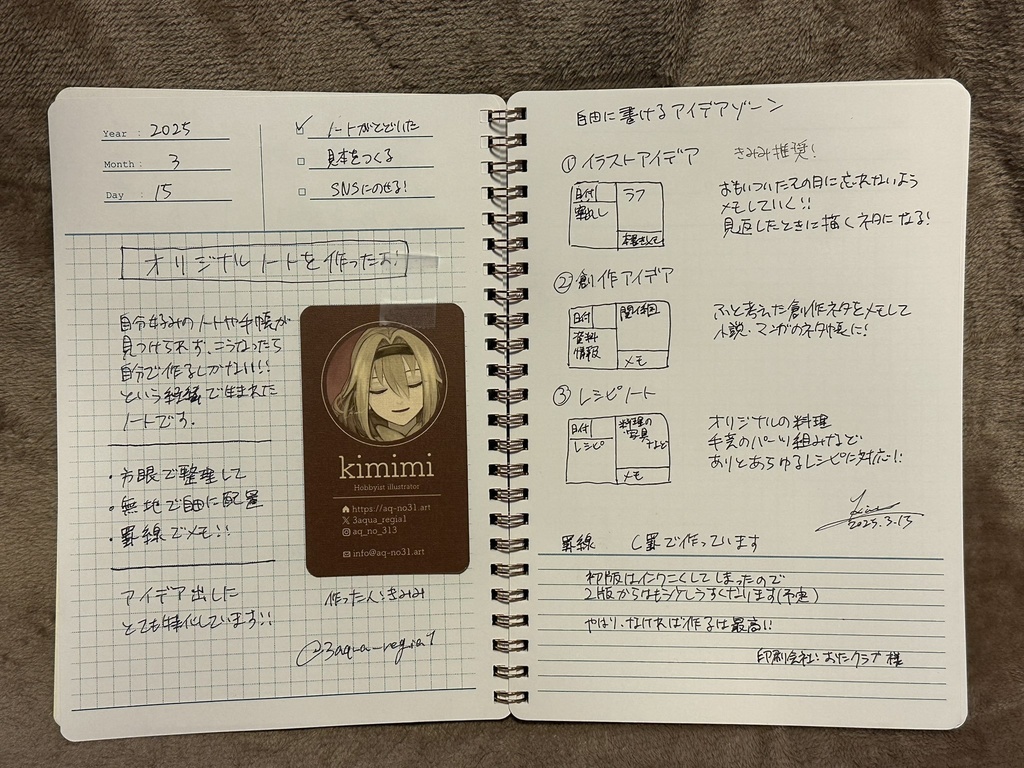 Year : 2025
Month : 3
Day : 15
ノートがとどいた
見本をつくる
SNSにのせる!
オリジナルノートを作ったお!
自分好みのノートや手帳が
見つけられず、こうなったら
自分で作るしかない!!
という経緯で生まれた
ノートです.
・方眼で整理して
・無地で自由に配置
・罫線でメモ!!
アイデア出しに
とても特化しています!!
kimimi
Hobbyist illustrator
https://aq-no31.art
3aqua_regia1
aq_no_313
info@aq-no31.art
作った人:きみみ
@3aqua_regia1
自由に書けるアイデアゾーン
①イラストアイデア きみみ推奨!
日付
ラフ
おもいついたその日に忘れないよう
メモしていく!!
見返したときに描くネタになる!
②創作アイデア
日付
関係図
資料
情報
メモ
ふと考えた創作ネタをメモして
小説・マンガのネタ帳に!
③レシピノート
日付
料理の
写真
など
レシピ
メモ
オリジナルの料理
手芸のパーツ組みなど
ありとあらゆるレシピに対応!!
2025.3.15
罫線 C罫で作っています
初版はインクこくしてしまったので
2版からはもう少しうすくなります(予定)
やはり、なければ作るは最高!!
印刷会社:おたクラブ 様